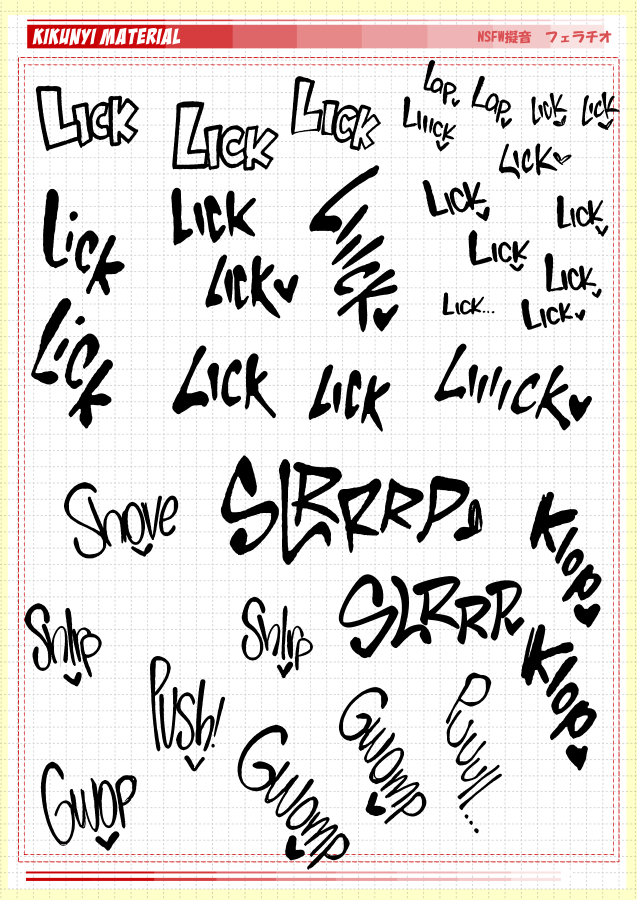 KIKUNYI MATERIAL
NSFW擬音 フェラチオ
LICK
LICK
LICK
LAP
LAP
LICK
LICK
LIIICK
LICK
LICK
LICK
LIIICK
LICK
LICK
LICK
LICK
LICK
LICK...
LICK
LICK
LICK
LICK
LICK
LIIIICK
Shove
SLRRRP
Klop
Shlrp
Shlrp
SLRRP
Klop
PUSh!
Gwomp
Puuull...
Gwomp
Gwop